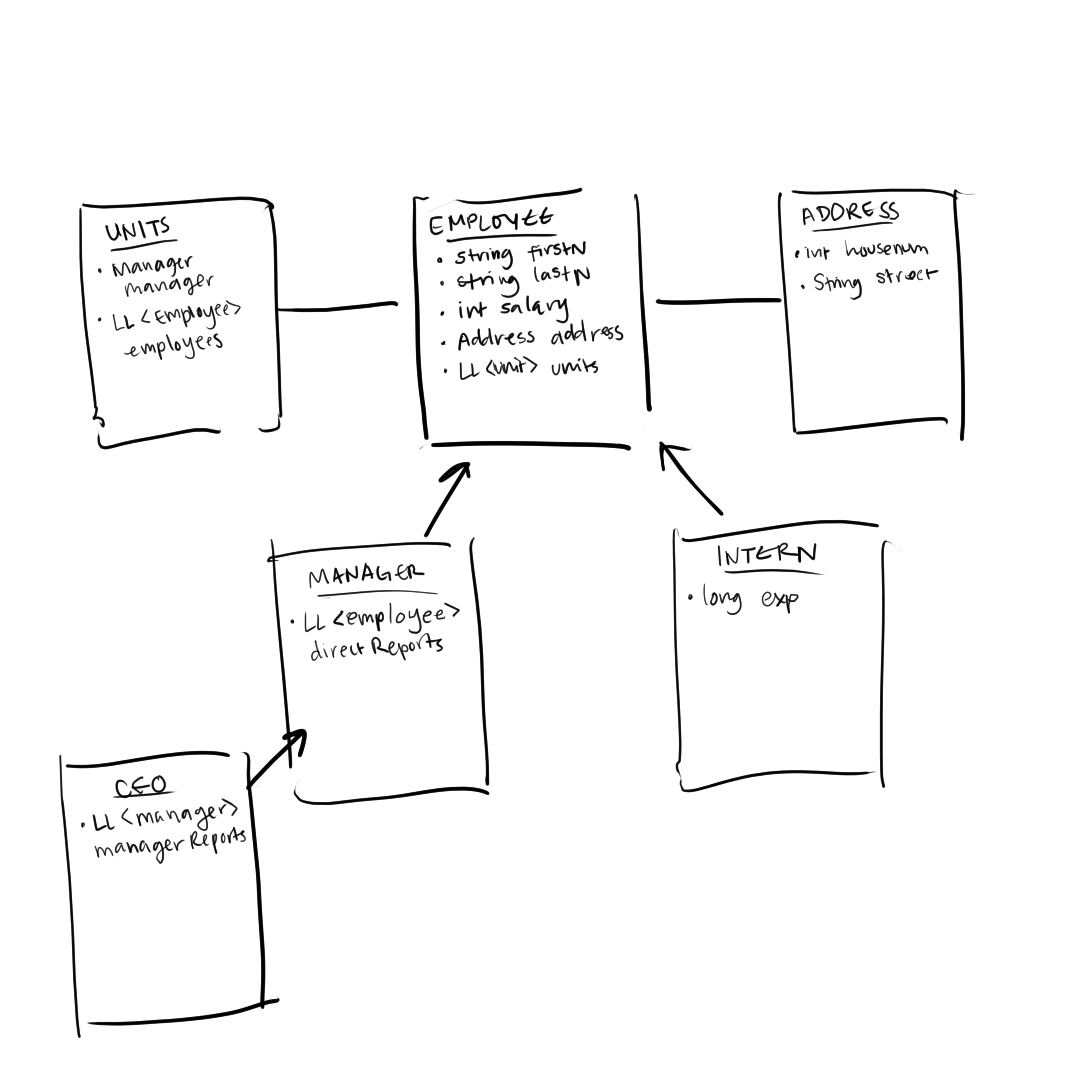 UNITS
• Manager
manager
• LL <Employee>
employees
EMPLOYEE
• string firstN
• string lastN
• int salary
• Address address
• LL <unit> units
ADDRESS
• int housenum
• String street
MANAGER
• LL <employee>
directReports
INTERN
• long exp
CEO
• LL <manager>
managerReports